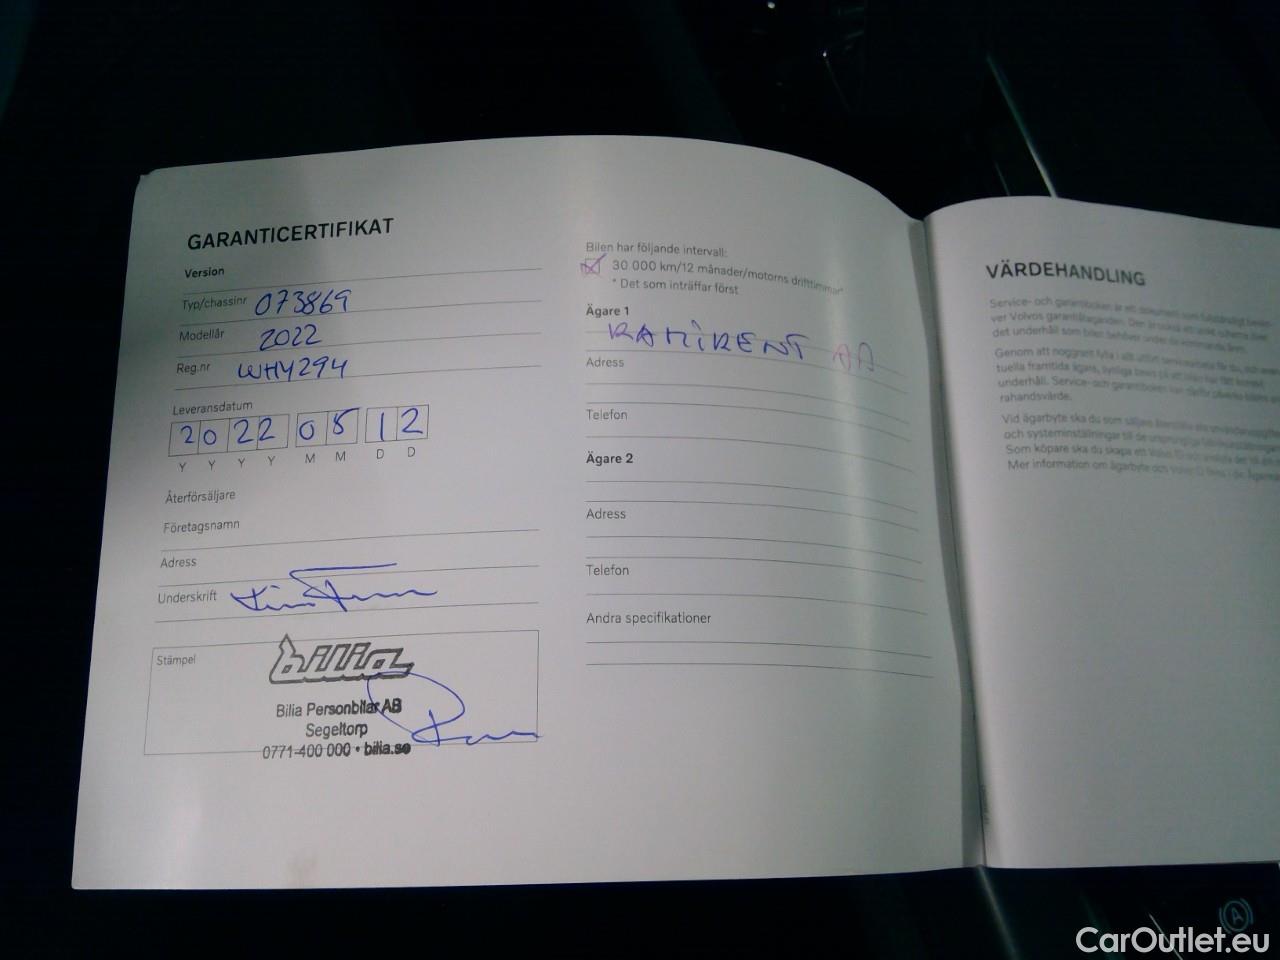 GARANTICERTIFIKAT
Version
Typ/chassinr 073869
Modellår 2022
Reg.nr WHY294
Leveransdatum
2 0 2 2 0 5 1 2
Y Y Y Y M M D D
Återförsäljare
Företagsnamn
Adress
Underskrift
Stämpel
bilia
Bilia Personbilar AB
Segeltorp
0771-400 000 • bilia.se
Bilen har följande intervall:
30 000 km/12 månader/motorns drifttimmar*
* Det som inträffar först
Ägare 1
RAMIRENT AB
Adress
Telefon
Ägare 2
Adress
Telefon
Andra specifikationer
VÄRDEHANDLING
Service- och garantiboken är ett dokument som fullständigt
ver Volvos garantiåtaganden.
det underhåll som bilen behöver under de kommande åren.
Genom att noggrant fylla i allt utfört
tuella framtida ägare, synliga bevis på att man har fått korrekt
underhåll. Service- och garantiboken
rahandsvärde.
Vid ägarbyte ska du som säljare återställa alla
och systeminställningar till de ursprungliga
Som köpare ska du skapa ett Volvo ID och
Mer information om ägarbyte och Volvo ID finns i
CarOutlet.eu